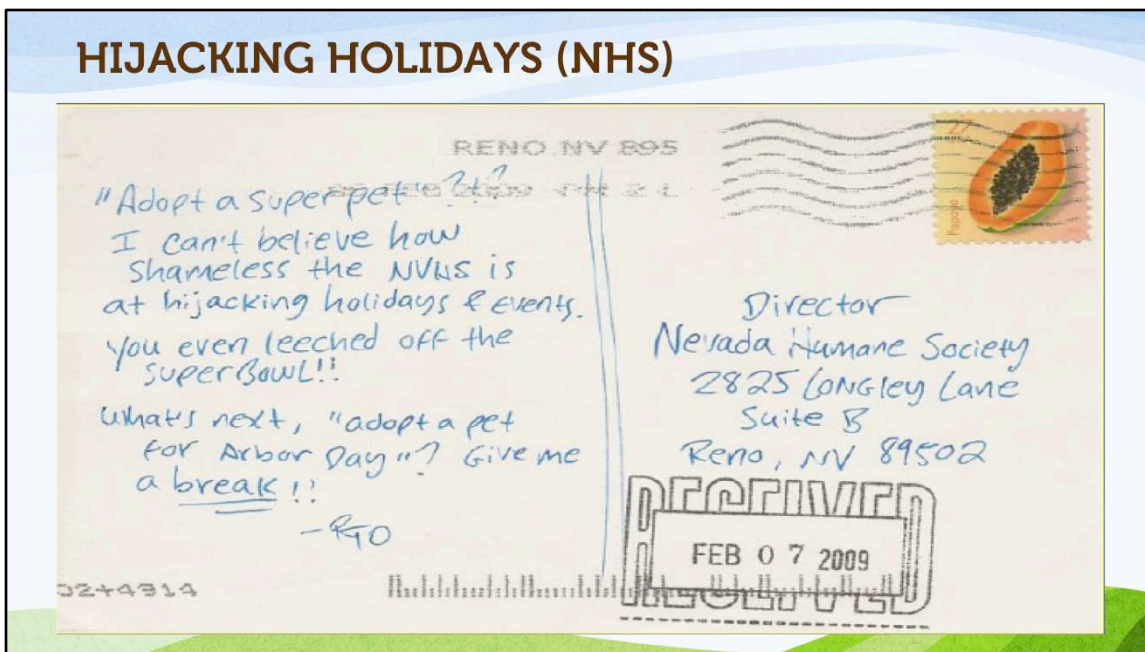 HIJACKING HOLIDAYS (NHS)
RENO NV 895
"Adopt a superpet"?!?
I can't believe how
shameless the NVHS is
at hijacking holidays & events.
You even leeched off the
SuperBowl!!
What's next, "adopt a pet
for Arbor Day"? Give me
a break!!
27
Papaya
Director
Nevada Humane Society
2825 Longley Lane
Suite B
Reno, NV 89502
RECEIVED
FEB 07 2009
RECEIVED